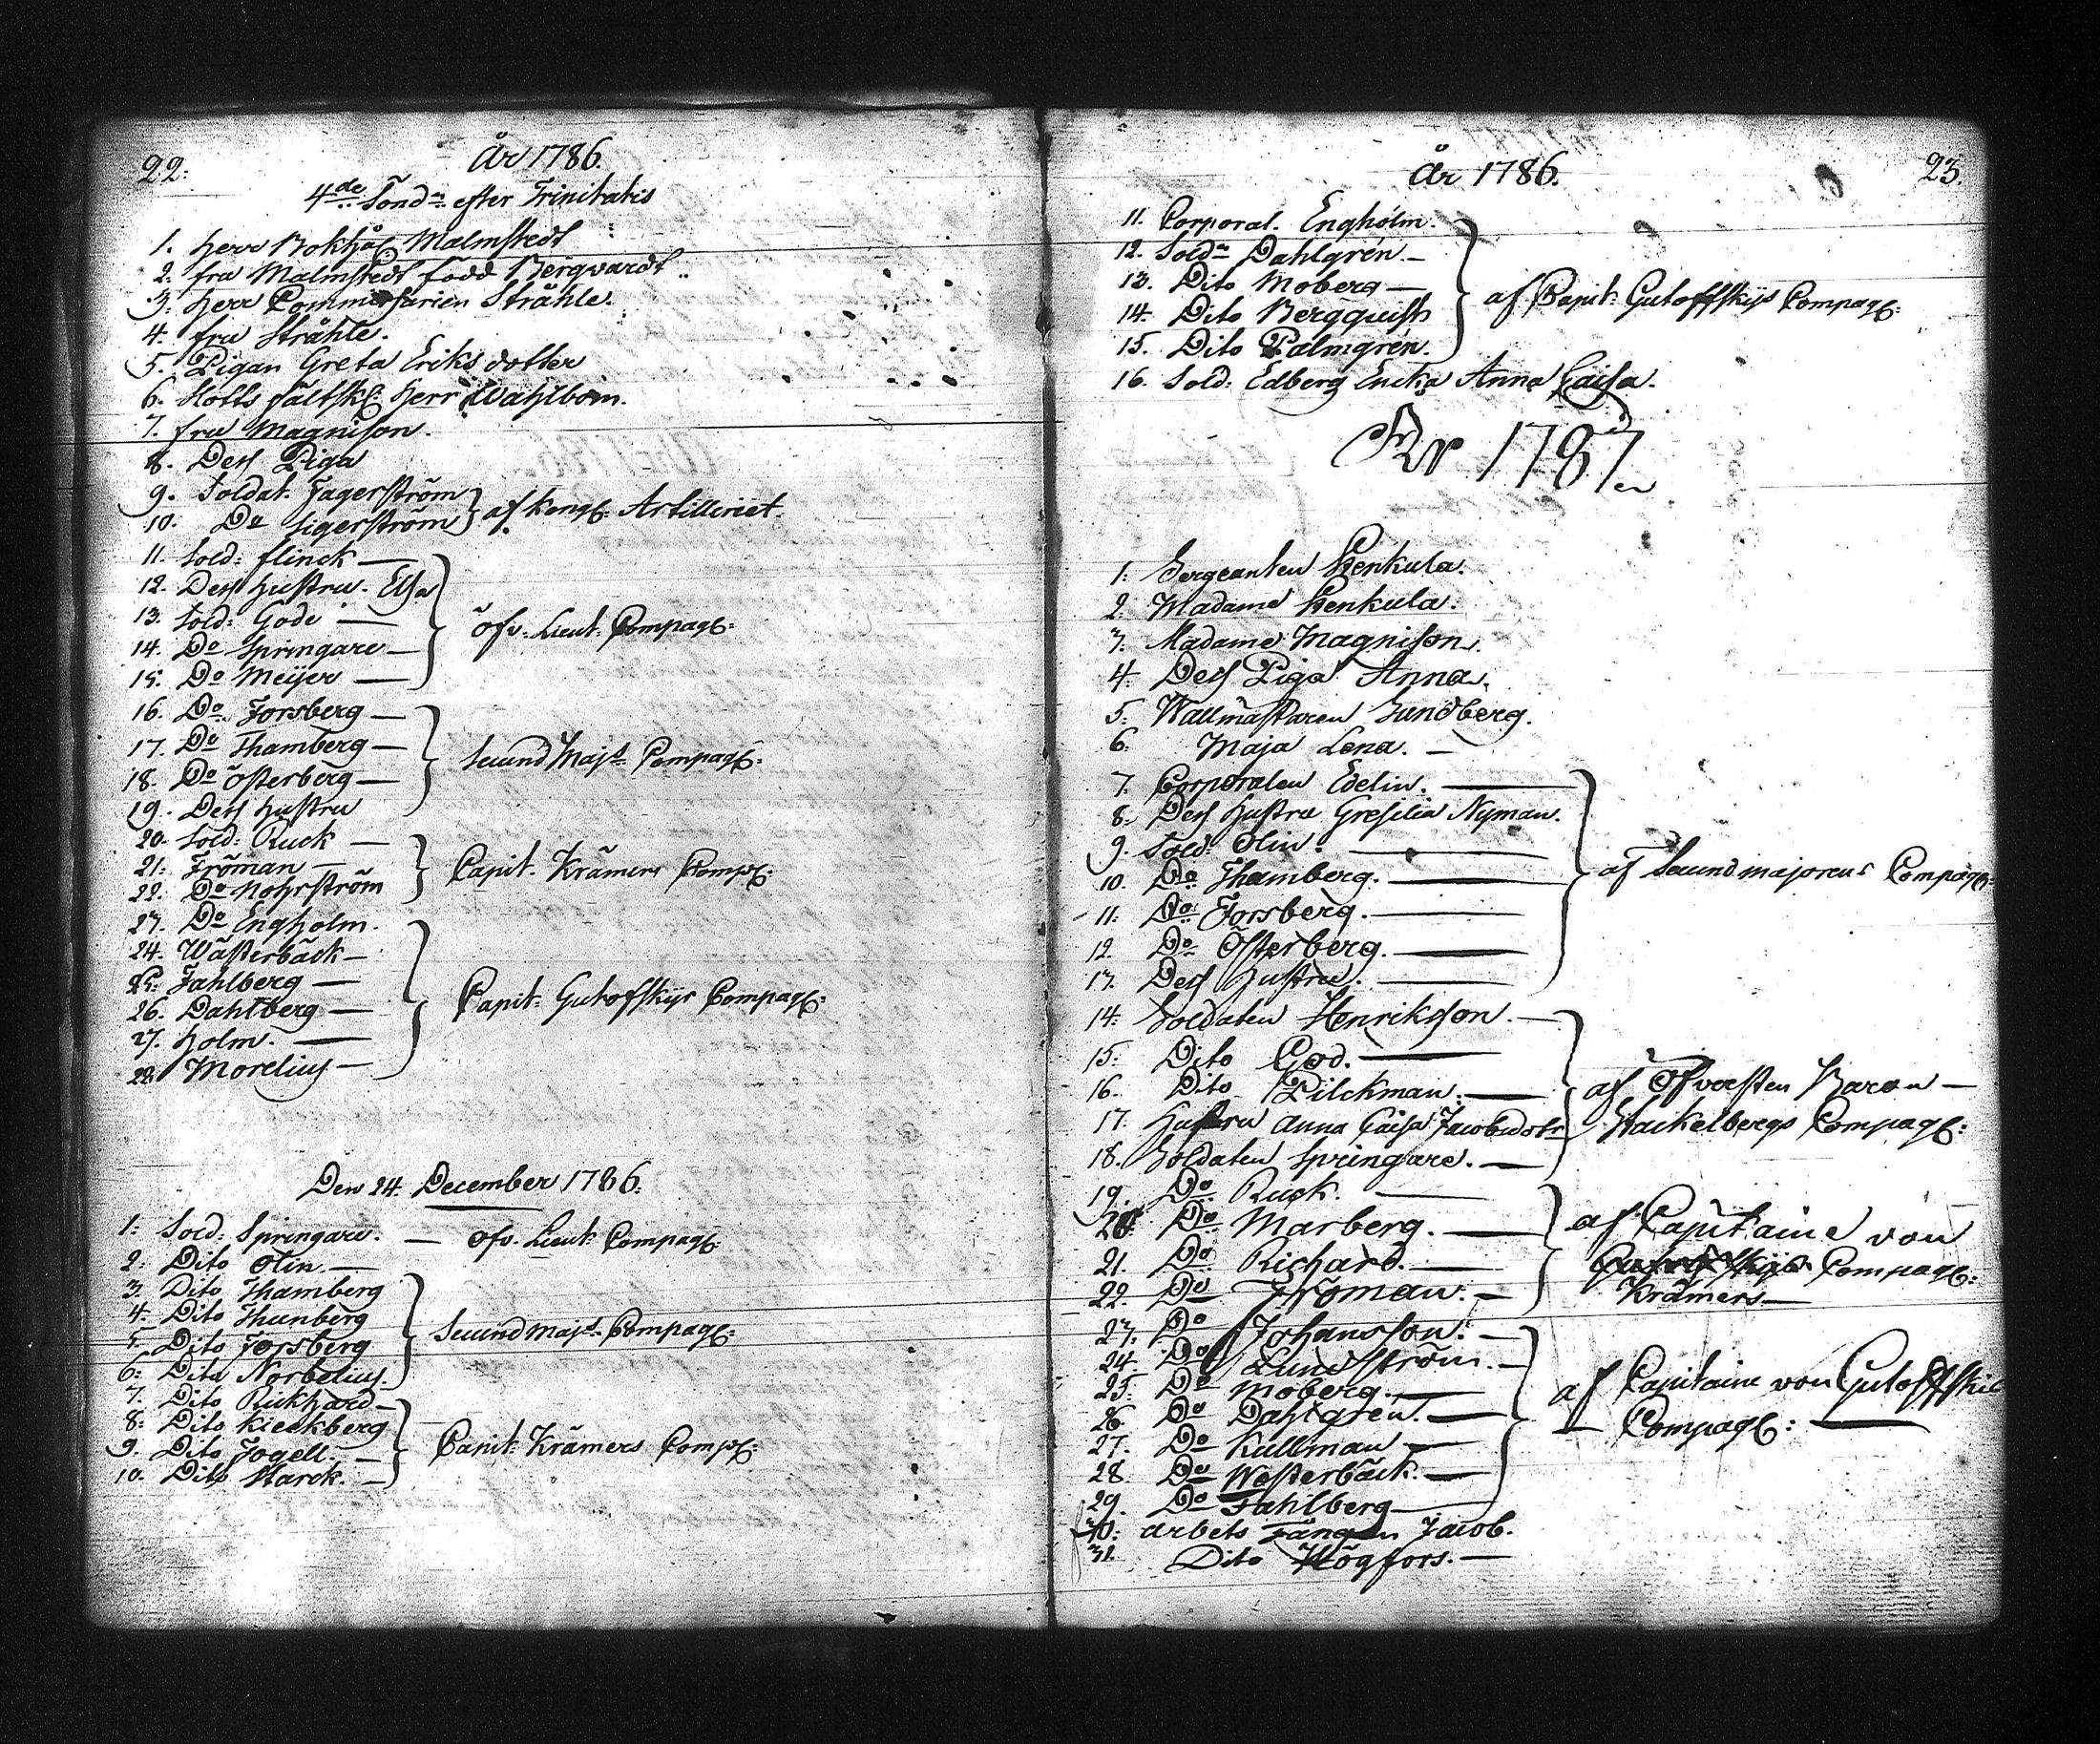 22.
År 1786.
4de Sönd: efter Trinitatis
1. Herr Bokhål: Malmstedt
2. fru Malmstedt född Bergvardt
3. Herr Commissarien Stråhle.
4. fru Stråhle.
5. Pigan Greta Eriksdotter
6. Slotts fältsk: Herr Wahlbom.
7. fru Magnison.
8. Dess Piga
9. Soldat. Fagerström
10. Do Sigerström } af Kongl: Artilleriet.
11. Sold: flinck —
12. Dess hustru. Elsa
13. Sold: Gode —
14. Do Springare —
15. Do Meijer —
} Öfv: Lieut: Compagn:
16. Do Forsberg —
17. Do Thamberg —
18. Do Österberg —
19. Dess hustru
} Secund Majs Compagn:
20. Sold: Ruck —
21. Fröman —
22. Do Nohrström
} Capit. Krämers Comp:
23. Do Engholm.
24. Wästerbäck —
25. Fahlberg —
26. Dahlberg —
27. Holm. —
28. Morelius —
} Capit: Gutofskijs Compagn:
Den 24. December 1786:
1: Sold: Springare. — Öfv. Lieut: Compagn:
2: Dito Olin. —
3. Dito Thamberg
4. Dito Thunberg
5. Dito Forsberg
6: Dito Norbelius
} Secundmajs Compagn:
7. Dito Rickhard —
8: Dito Kieckberg
9. Dito Fogell. —
10. Dito Starck. —
} Capit: Krämers Comp:
År 1786.
23.
11. Corporal. Enghólm.
12. Sold: Dahlgrén. —
13. Dito Moberg —
14. Dito Bergquist
15. Dito Palmgrén.
} af Capit: Gutoffskijs Compagn:
16. Sold: Edberg Encka Anna Caisa.
År 1787.
1: Sergeanten Stenkula.
2: Madame Stenkula:
3: Madame Magnison.
4. Dess Piga Anna.
5: Wallmästaren Lundberg.
6. Maja Lena. —
7. Corporalen Edelin. —
8. Dess Hustru Gresilia Nyman.
9. Sold: Olin. —
10. Do Thamberg. —
11. Do Forsberg. —
12. Do Österberg. —
13. Dess Hustru. —
} af Secundmajorens Compagn:
14: Soldaten Henriksson. —
15: Dito God. —
16. Dito Pilckman. —
17. Hustru Anna Caisa Jacobsdotr
18. Soldaten Springare. —
} af Öfversten Baron —
Stackelbergs Compagn:
19. Do Ruck. —
20. Do Marberg. —
21. Do Richard. —
22. Do Fröman. —
} af Capitaine von
Gutoffskijs Compagn:
Krämers —
23. Do Johansson. —
24. Do Lundström. —
25: Do Moberg. —
26. Do Dahlgrén. —
27. Do Kullman —
28 Do Westerbäck. —
29. Do Fahlberg —
} af Capitaine von Gutoffskis
Compagn: —
30: arbets Fången Jacob.
31. Dito Högfors. —